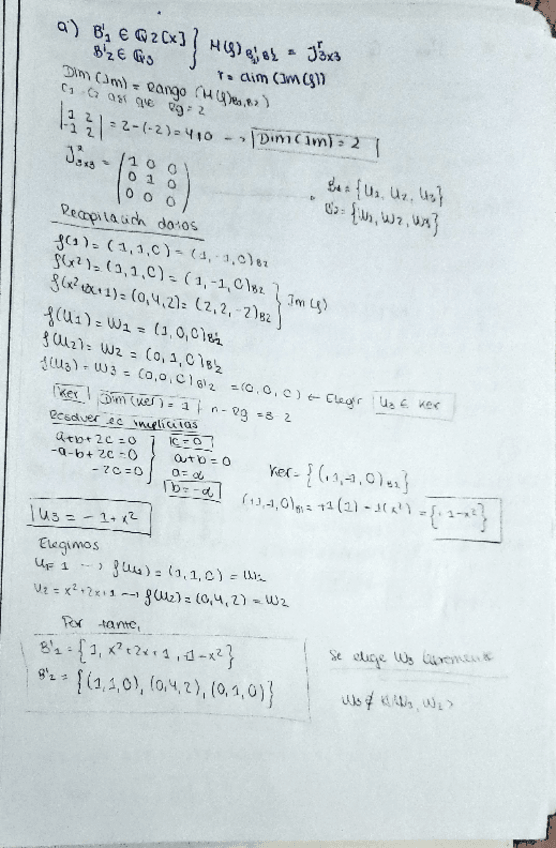 a) B'1 ∈ Q2[x] } M(f)B'1,B'2 = J^r 3x3
B'2 ∈ Q3 r = dim (Im(f))
Dim (Im) = Rango (M(f)B1,B2)
C1 = C2 así que Rg = 2
|1 2|
|-1 2| = 2-(-2) = 4≠0 --> Dim(Im) = 2
J^2 3x3 = (1 0 0
0 1 0
0 0 0)
B'1 = {U1, U2, U3}
B'2 = {W1, W2, W3}
Recopilación datos
f(1) = (1,1,0) = (1,-1,0)B2
f(x²) = (1,1,0) = (1,-1,0)B2
f(x²+2x+1) = (0,4,2) = (2,2,-2)B2 } Im(f)
f(U1) = W1 = (1,0,0)B'2
f(U2) = W2 = (0,1,0)B'2
f(U3) = W3 = (0,0,0)B'2 = (0,0,0) ← Elegir U3 ∈ Ker
Ker Dim(Ker) = 1 n - Rg = 2
Resolver ec implícitas
a+b+2c=0 c=0
-a-b+2c=0 a+b=0
-2c=0 a=α
b=-α
Ker = {(1,-1,0)B1}
(1,-1,0)B1 = +1(1) - 1(x²) = {1-x²}
U3 = -1+x²
Elegimos
U1= 1 --> f(U1) = (1,1,0) = W1
U2 = x²+2x+1 --> f(U2) = (0,4,2) = W2
Por tanto,
B'1 = {1, x²+2x+1, 1-x²}
B'2 = {(1,1,0), (0,4,2), (0,1,0)}
Se elige W3 libremente
W3 ∉ <W1, W2>